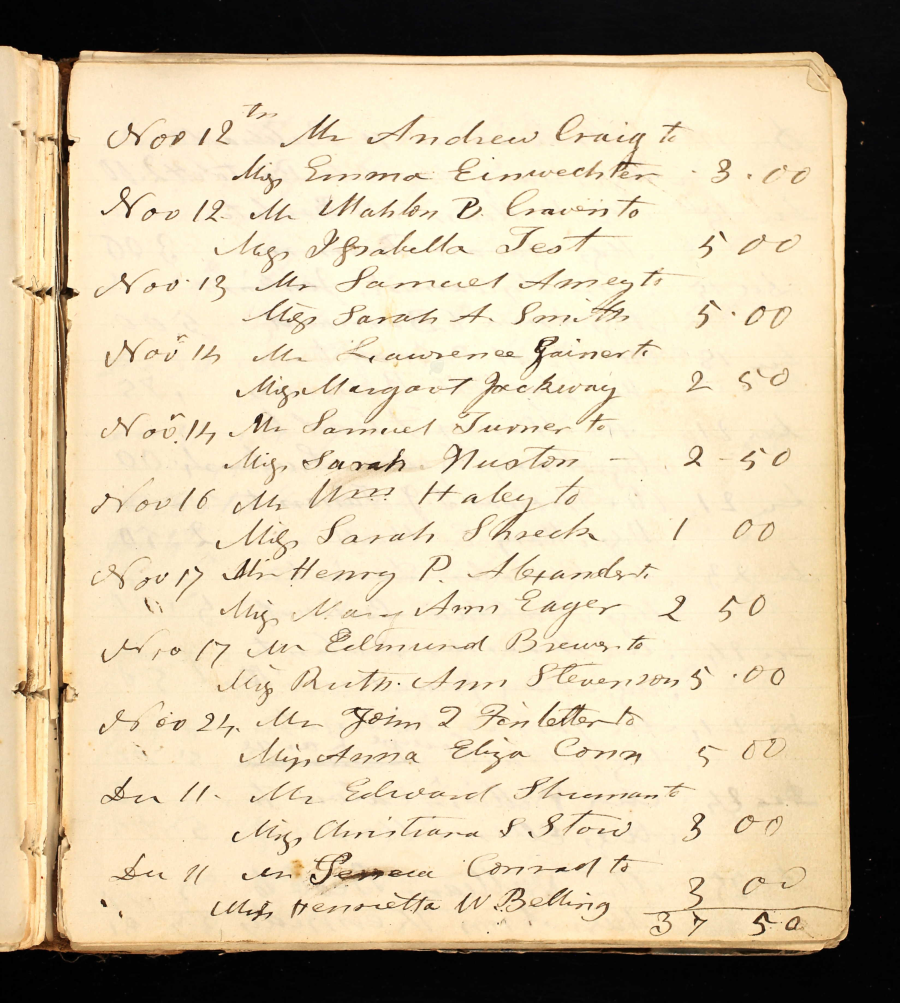 Nov 12th Mr Andrew Craig to
Miss Emma Einwechter . 3.00
Nov 12. Mr Mahlon D. Craven to
Miss Issabella Test 5 00
Nov 13 Mr Samuel Amey to
Miss Sarah A. Smith 5.00
Nov 14 Mr Lawrence Gainer to
Miss Margaret Jackway 2 50
Nov. 14 Mr Samuel Turner to
Miss Sarah Huston - 2-50
Nov 16 Mr Wm Haley to
Miss Sarah Shreck 1 00
Nov 17 Mr Henry P. Alexander to
" Miss Mary Ann Eager 2 50
Nov 17 Mr Edmund Brewer to
Miss Ruth. Ann Stevenson 5.00
Nov 24. Mr John Finletter to
Miss Anna Eliza Conn 5 00
Dec 11. Mr Edward Shuman to
Miss Christiana S Stow 3 00
Dec 11 Mr Conrad to
Miss Henrietta W Belling 3 00
37 50